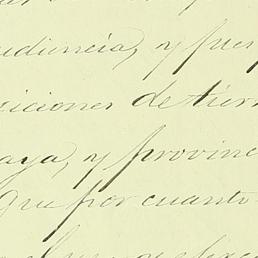 udiencia, y pues
siciones de tierr
aya, y provinc
Que por cuanto